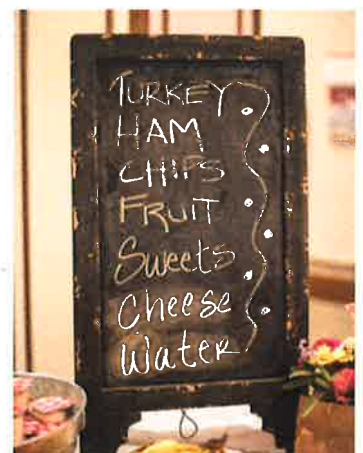 TURKEY
HAM
CHIPS
FRUIT
Sweets
Cheese
Water